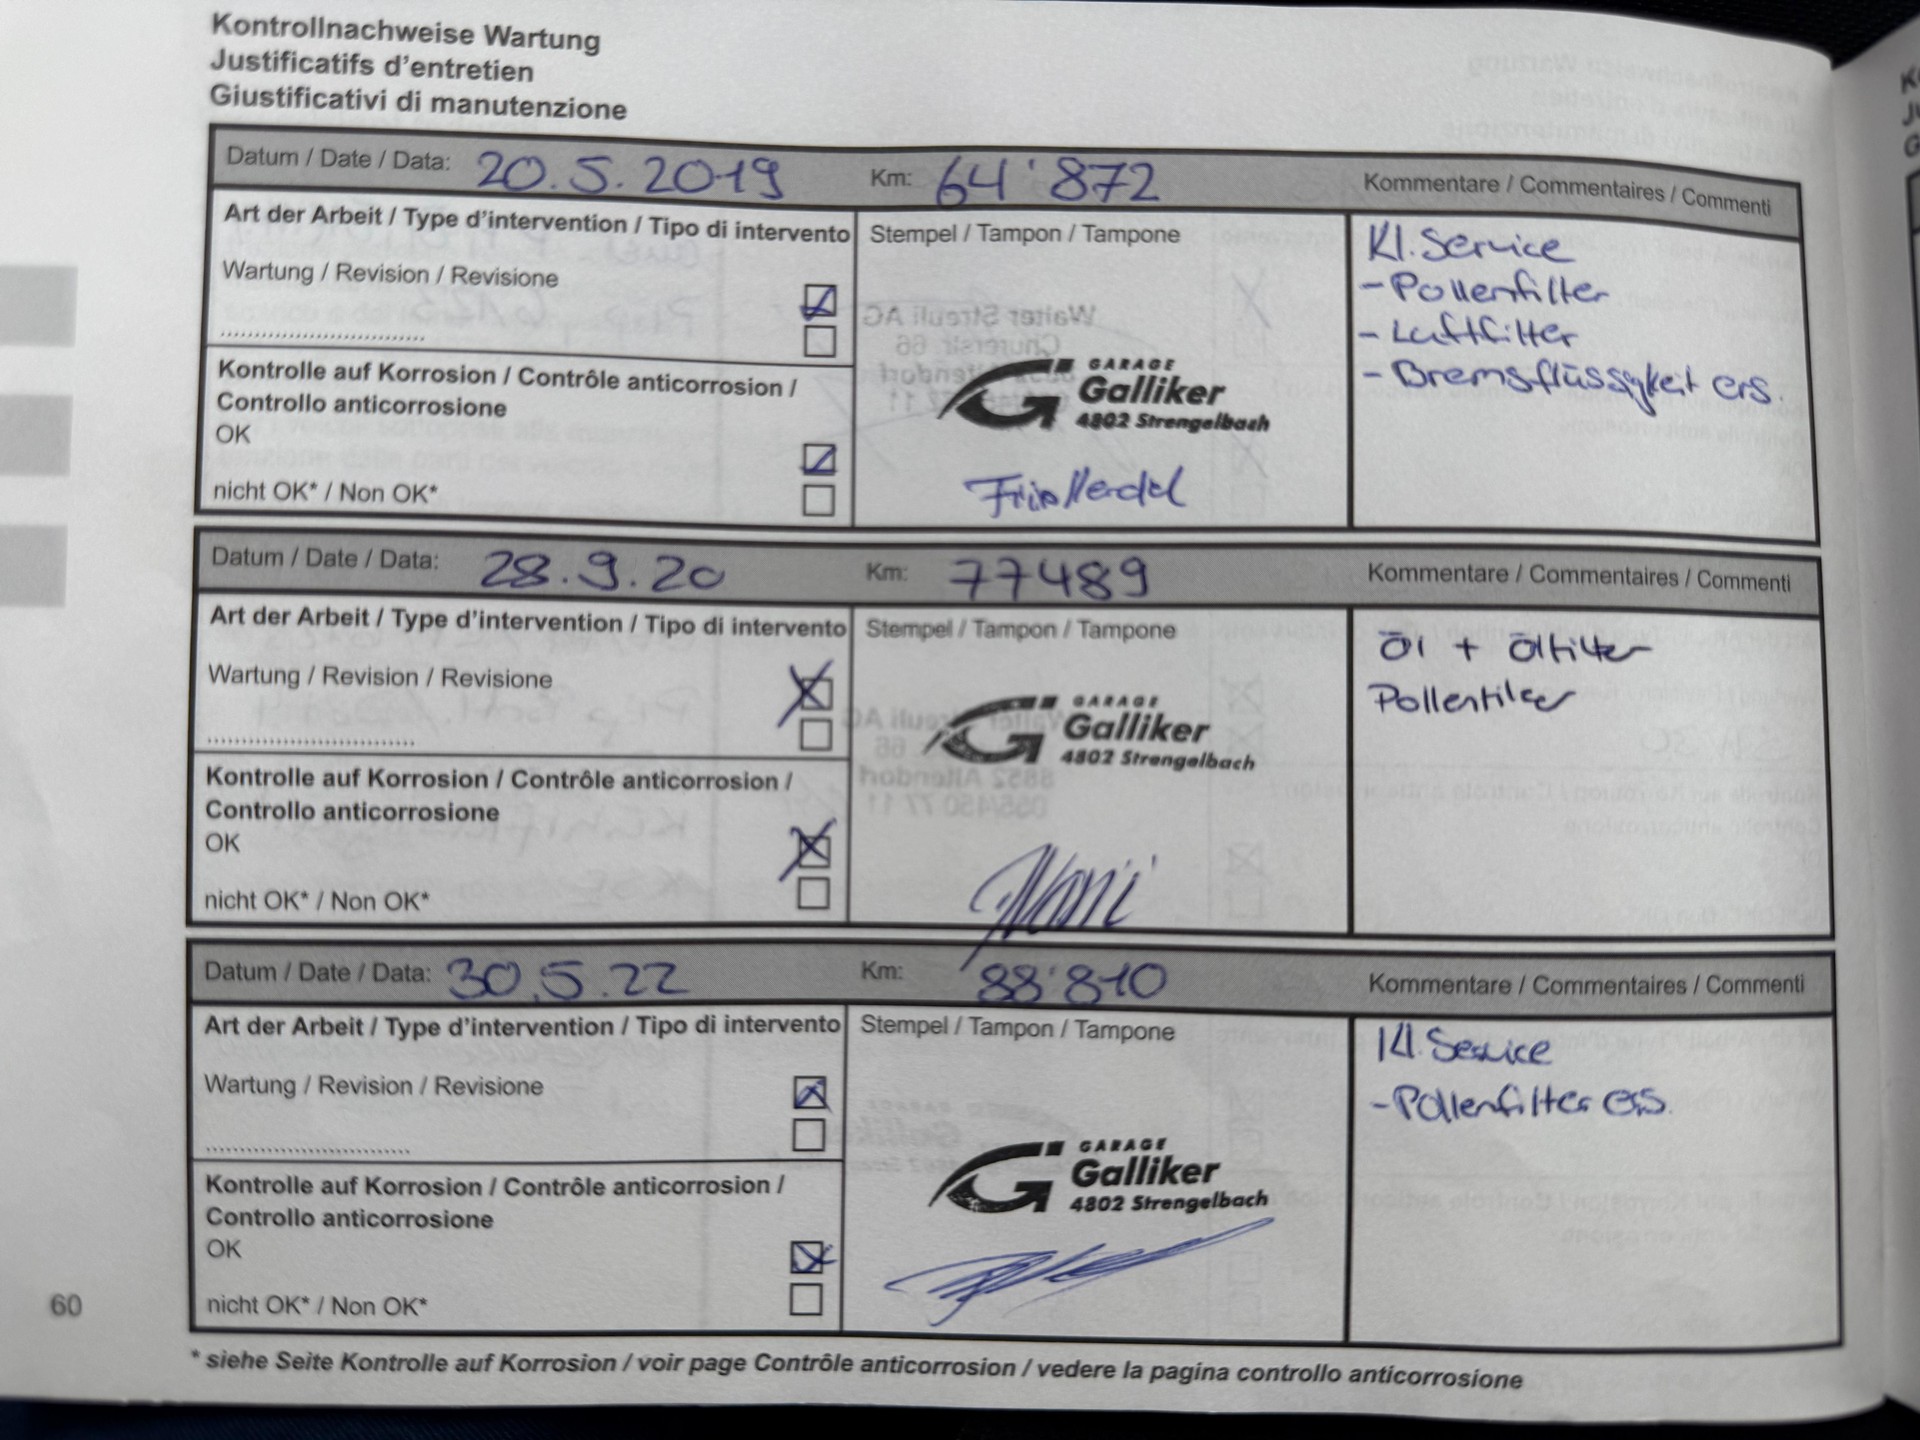 Kontrollnachweise Wartung
Justificatifs d'entretien
Giustificativi di manutenzione
Datum / Date / Data: 20.5.2019 Km: 64'872 Kommentare / Commentaires / Commenti
Art der Arbeit / Type d'intervention / Tipo di intervento
Wartung / Revision / Revisione
Kontrolle auf Korrosion / Contrôle anticorrosion /
Controllo anticorrosione
OK
nicht OK* / Non OK*
Stempel / Tampon / Tampone
GARAGE
Galliker
4802 Strengelbach
Kl. Service
- Pollenfilter
- Luftfilter
- Bremsflüssigkeit ers.
Datum / Date / Data: 28.9.20 Km: 77489 Kommentare / Commentaires / Commenti
Art der Arbeit / Type d'intervention / Tipo di intervento
Wartung / Revision / Revisione
Kontrolle auf Korrosion / Contrôle anticorrosion /
Controllo anticorrosione
OK
nicht OK* / Non OK*
Stempel / Tampon / Tampone
GARAGE
Galliker
4802 Strengelbach
Öl + Ölfilter
Pollenfilter
Datum / Date / Data: 30.5.22 Km: 88'810 Kommentare / Commentaires / Commenti
Art der Arbeit / Type d'intervention / Tipo di intervento
Wartung / Revision / Revisione
Kontrolle auf Korrosion / Contrôle anticorrosion /
Controllo anticorrosione
OK
nicht OK* / Non OK*
Stempel / Tampon / Tampone
GARAGE
Galliker
4802 Strengelbach
Kl. Service
- Pollenfilter ers.
* siehe Seite Kontrolle auf Korrosion / voir page Contrôle anticorrosion / vedere la pagina controllo anticorrosione
60